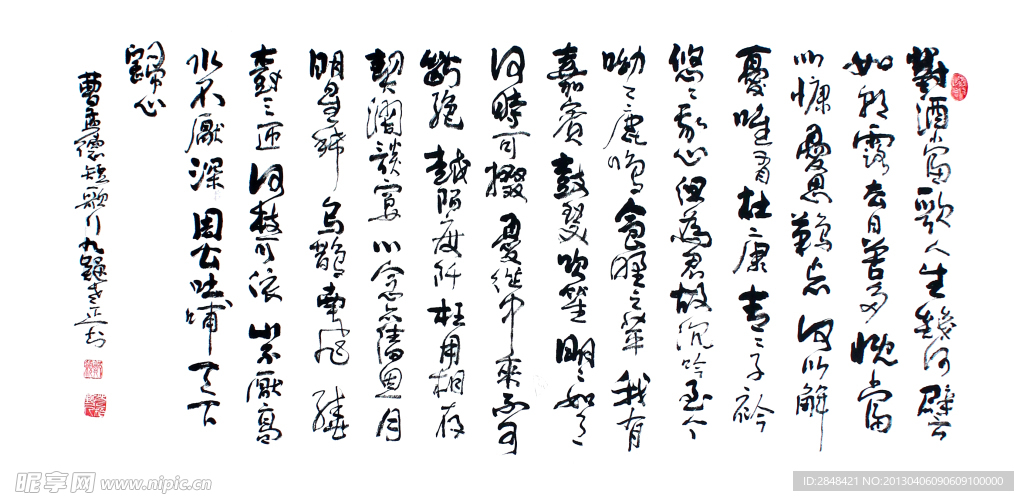 對酒當歌人生幾何譬
如朝露去日苦多慨當
以慷憂思難忘何以解
憂唯有杜康青〻子衿
悠〻我心但為君故沉吟至今
呦〻鹿鳴食野之苹我有
嘉賓鼓瑟吹笙明〻如月
何時可掇憂從中來不可
斷絕越陌度阡枉用相存
契闊談宴心念舊恩月
明星稀烏鵲南飛繞
樹三匝何枝可依山不厭高
水不厭深周公吐哺天下
歸心
曹孟德短歌行
昵享网 www.nipic.cn
ID:2848421 NO:20130406090609100000